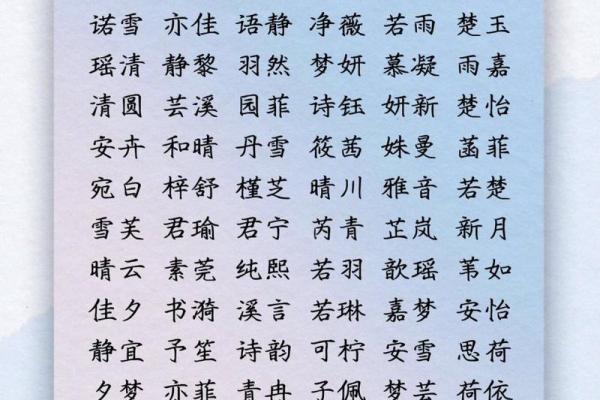 诺雪 亦佳 语静 净薇 若雨 楚玉
瑶清 静黎 羽然 梦妍 慕凝 雨嘉
清圆 芸溪 园菲 诗钰 妍新 楚怡
安卉 和晴 丹雪 筱茜 姝曼 菡菲
宛白 梓舒 槿芝 晴川 雅音 若楚
雪芙 君瑜 君宁 芮青 芷岚 新月
晴云 素莞 纯熙 若羽 歆瑶 苇如
佳夕 书漪 溪言 若琳 嘉梦 安怡
静宜 予笙 诗韵 可柠 安雪 思荷
夕梦 亦菲 青冉 子佩 梦芸 荷依